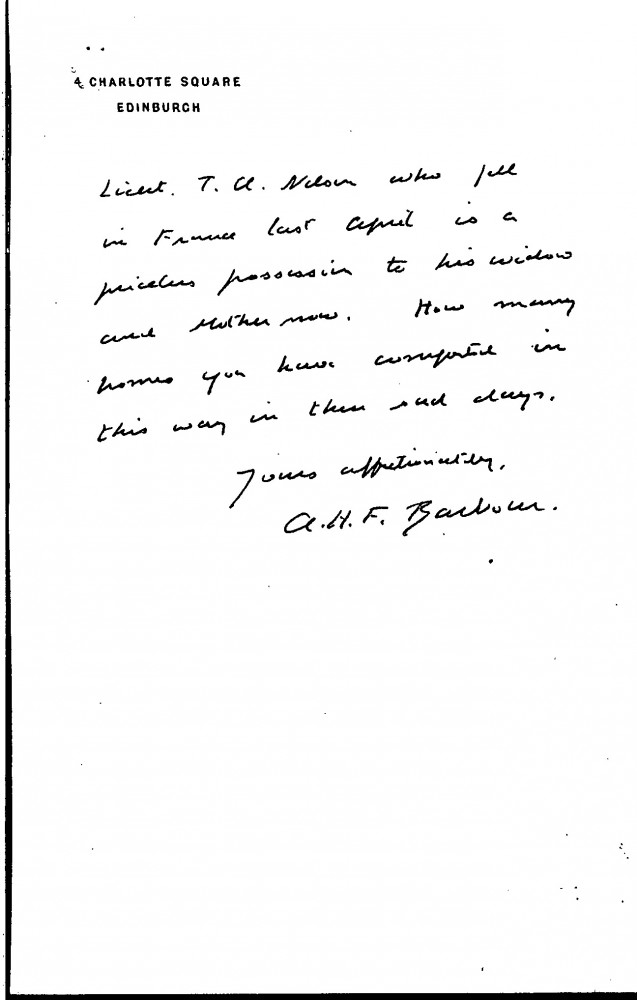 4 CHARLOTTE SQUARE
EDINBURGH
Lieut. T. A. Nelson who fell
in France last April is a
priceless possession to his widow
and Mother now. How many
homes you have comforted in
this way in these sad days.
Yours affectionately,
A.H.F. Barbour.